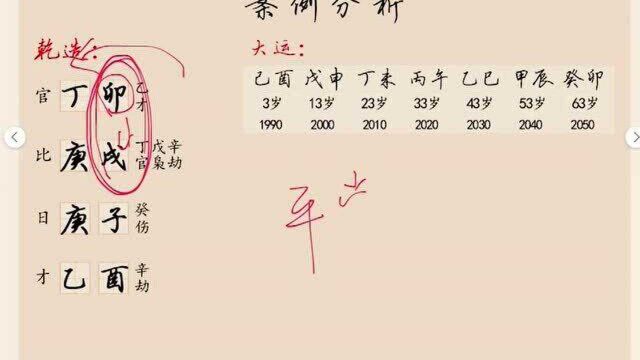 案例分析
乾造：
大运：
官 丁 卯 乙才
比 庚 戌 丁戊辛 官枭劫
日 庚 子 癸伤
才 乙 酉 辛劫
己酉 戊申 丁未 丙午 乙巳 甲辰 癸卯
3岁 13岁 23岁 33岁 43岁 53岁 63岁
1990 2000 2010 2020 2030 2040 2050